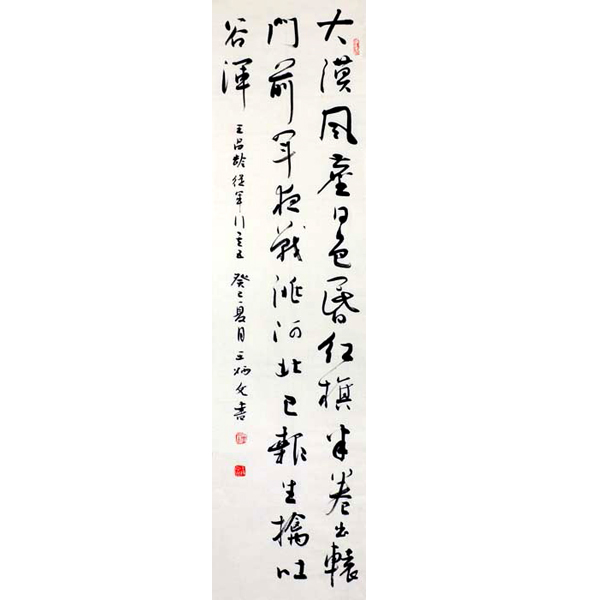 大漠風塵日色昏红旗半卷出轅
門前軍夜戰洮河北已報生擒吐
谷渾
王昌齡從軍行之五 癸巳夏月 王炳文書